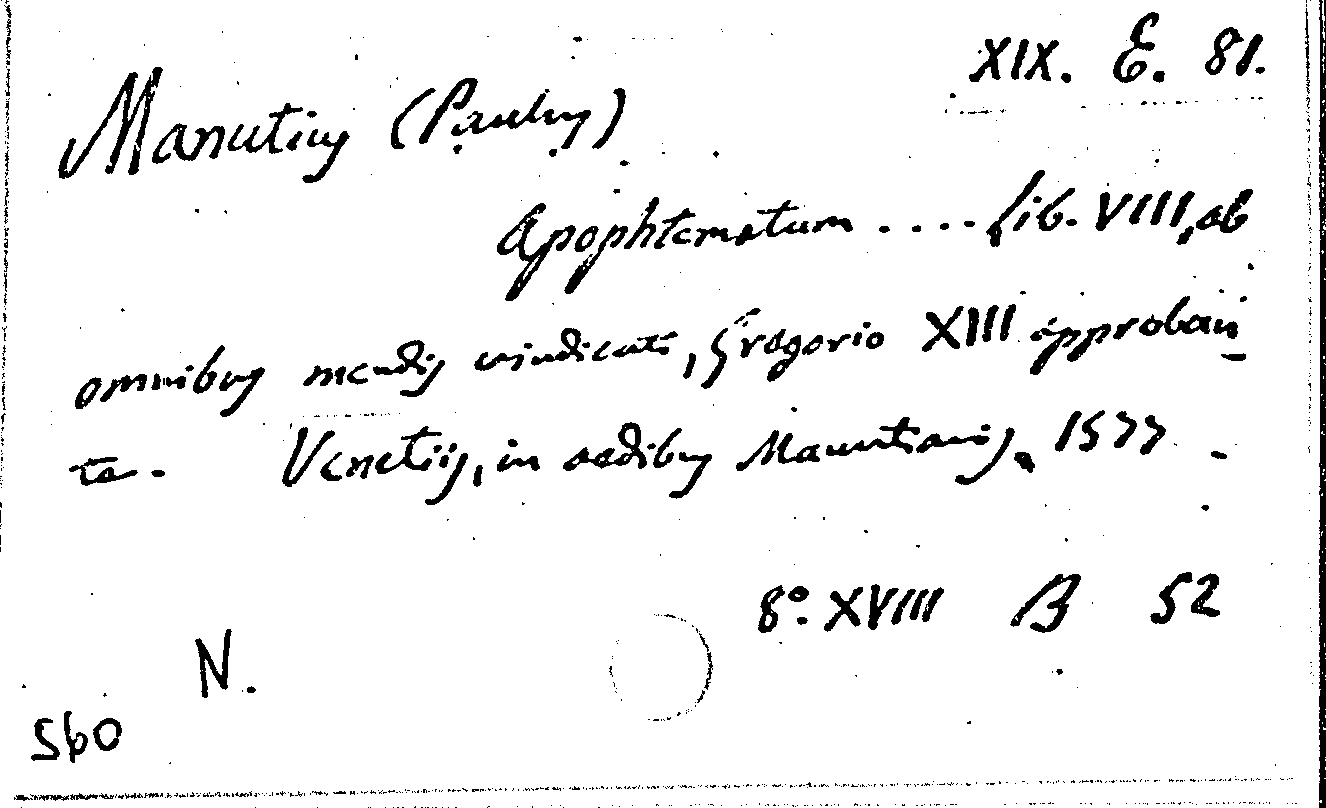 XIX. E. 81.
Manutius (Paulus)
Apophtematum .... lib. VIII, ab
omnibus mendis vindicati, Gregorio XIII approban
te. Venetiis, in aedibus Manutianis, 1577 -
8º. XVIII B 52
N.